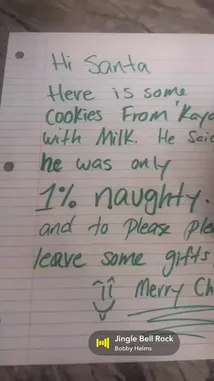 Hi Santa
Here is some
cookies From Kayd
with Milk. He Said
he was only
1% naughty.
and to Please Ple
leave some gifts
Merry Ch
Jingle Bell Rock
Bobby Helms